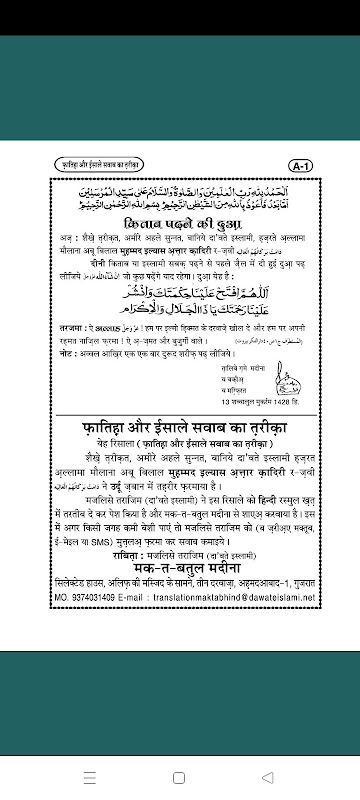 फ़ातिहा और ईसाले सवाब का तरीक़ा
A-1
اَلْحَمْدُ لِلّٰهِ رَبِّ الْعٰلَمِيْنَ وَالصَّلٰوةُ وَالسَّلَامُ عَلٰى سَيِّدِ الْمُرْسَلِيْنَ
اَمَّا بَعْدُ فَاَعُوْذُ بِاللّٰهِ مِنَ الشَّيْطٰنِ الرَّجِيْمِ بِسْمِ اللّٰهِ الرَّحْمٰنِ الرَّحِيْمِ
किताब पढ़ने की दुआ
अज़् : शैख़े त़रीक़त, अमीरे अहले सुन्नत, बानिये दा'वते इस्लामी, ह़ज़रते अ़ल्लामा
मौलाना अबू बिलाल मुह़म्मद इल्यास अ़त्त़ार क़ादिरी र-ज़वी دَامَتْ بَرَكَاتُهُمُ الْعَالِيَه
दीनी किताब या इस्लामी सबक़ पढ़ने से पहले ज़ैल में दी हुई दुआ़ पढ़
लीजिये اِنْ شَآءَاللّٰه عَزَّوَجَلَّ जो कुछ पढ़ेंगे याद रहेगा। दुआ़ येह है :
اَللّٰهُمَّ افْتَحْ عَلَيْنَا حِكْمَتَكَ وَانْشُرْ
عَلَيْنَا رَحْمَتَكَ يَا ذَا الْجَلَالِ وَالْاِكْرَام
तरजमा : ऐ अल्लाह عَزَّوَجَلَّ ! हम पर इ़ल्मो ह़िक्मत के दरवाज़े खोल दे और हम पर अपनी
रह़मत नाज़िल फ़रमा ! ऐ अ़-ज़मत और बुज़ुर्गी वाले ।
नोट : अव्वल आख़िर एक एक बार दुरूद शरीफ़ पढ़ लीजिये ।
त़ालिबे ग़मे मदीना
व बक़ीअ़
व मग़्फ़िरत
13 शव्वालुल मुकर्रम 1428 हि.
फ़ातिह़ा और ईसाले सवाब का त़रीक़ा
येह रिसाला ( फ़ातिह़ा और ईसाले सवाब का त़रीक़ा )
शैख़े त़रीक़त, अमीरे अहले सुन्नत, बानिये दा'वते इस्लामी ह़ज़रत
अ़ल्लामा मौलाना अबू बिलाल मुह़म्मद इल्यास अ़त्त़ार क़ादिरी र-ज़वी
دَامَتْ بَرَكَاتُهُمُ الْعَالِيَه ने उर्दू ज़बान में तह़रीर फ़रमाया है ।
मजलिसे तराजिम (दा'वते इस्लामी) ने इस रिसाले को हिन्दी रस्मुल ख़त़
में तरतीब दे कर पेश किया है और मक-त-बतुल मदीना से शाएअ़ करवाया है । इस
में अगर किसी जगह कमी बेशी पाएं तो मजलिसे तराजिम को (ब ज़रीअ़ए मक्तूब,
ई-मेइल या SMS) मुत़्त़लअ़ फ़रमा कर सवाब कमाइये ।
राबित़ा : मजलिसे तराजिम (दा'वते इस्लामी)
मक-त-बतुल मदीना
सिलेक्टेड हाउस, अलिफ़ की मस्जिद के सामने, तीन दरवाज़ा, अह़मदआबाद-1, गुजरात
MO. 9374031409 E-mail : translationmaktabhind@dawateislami.net